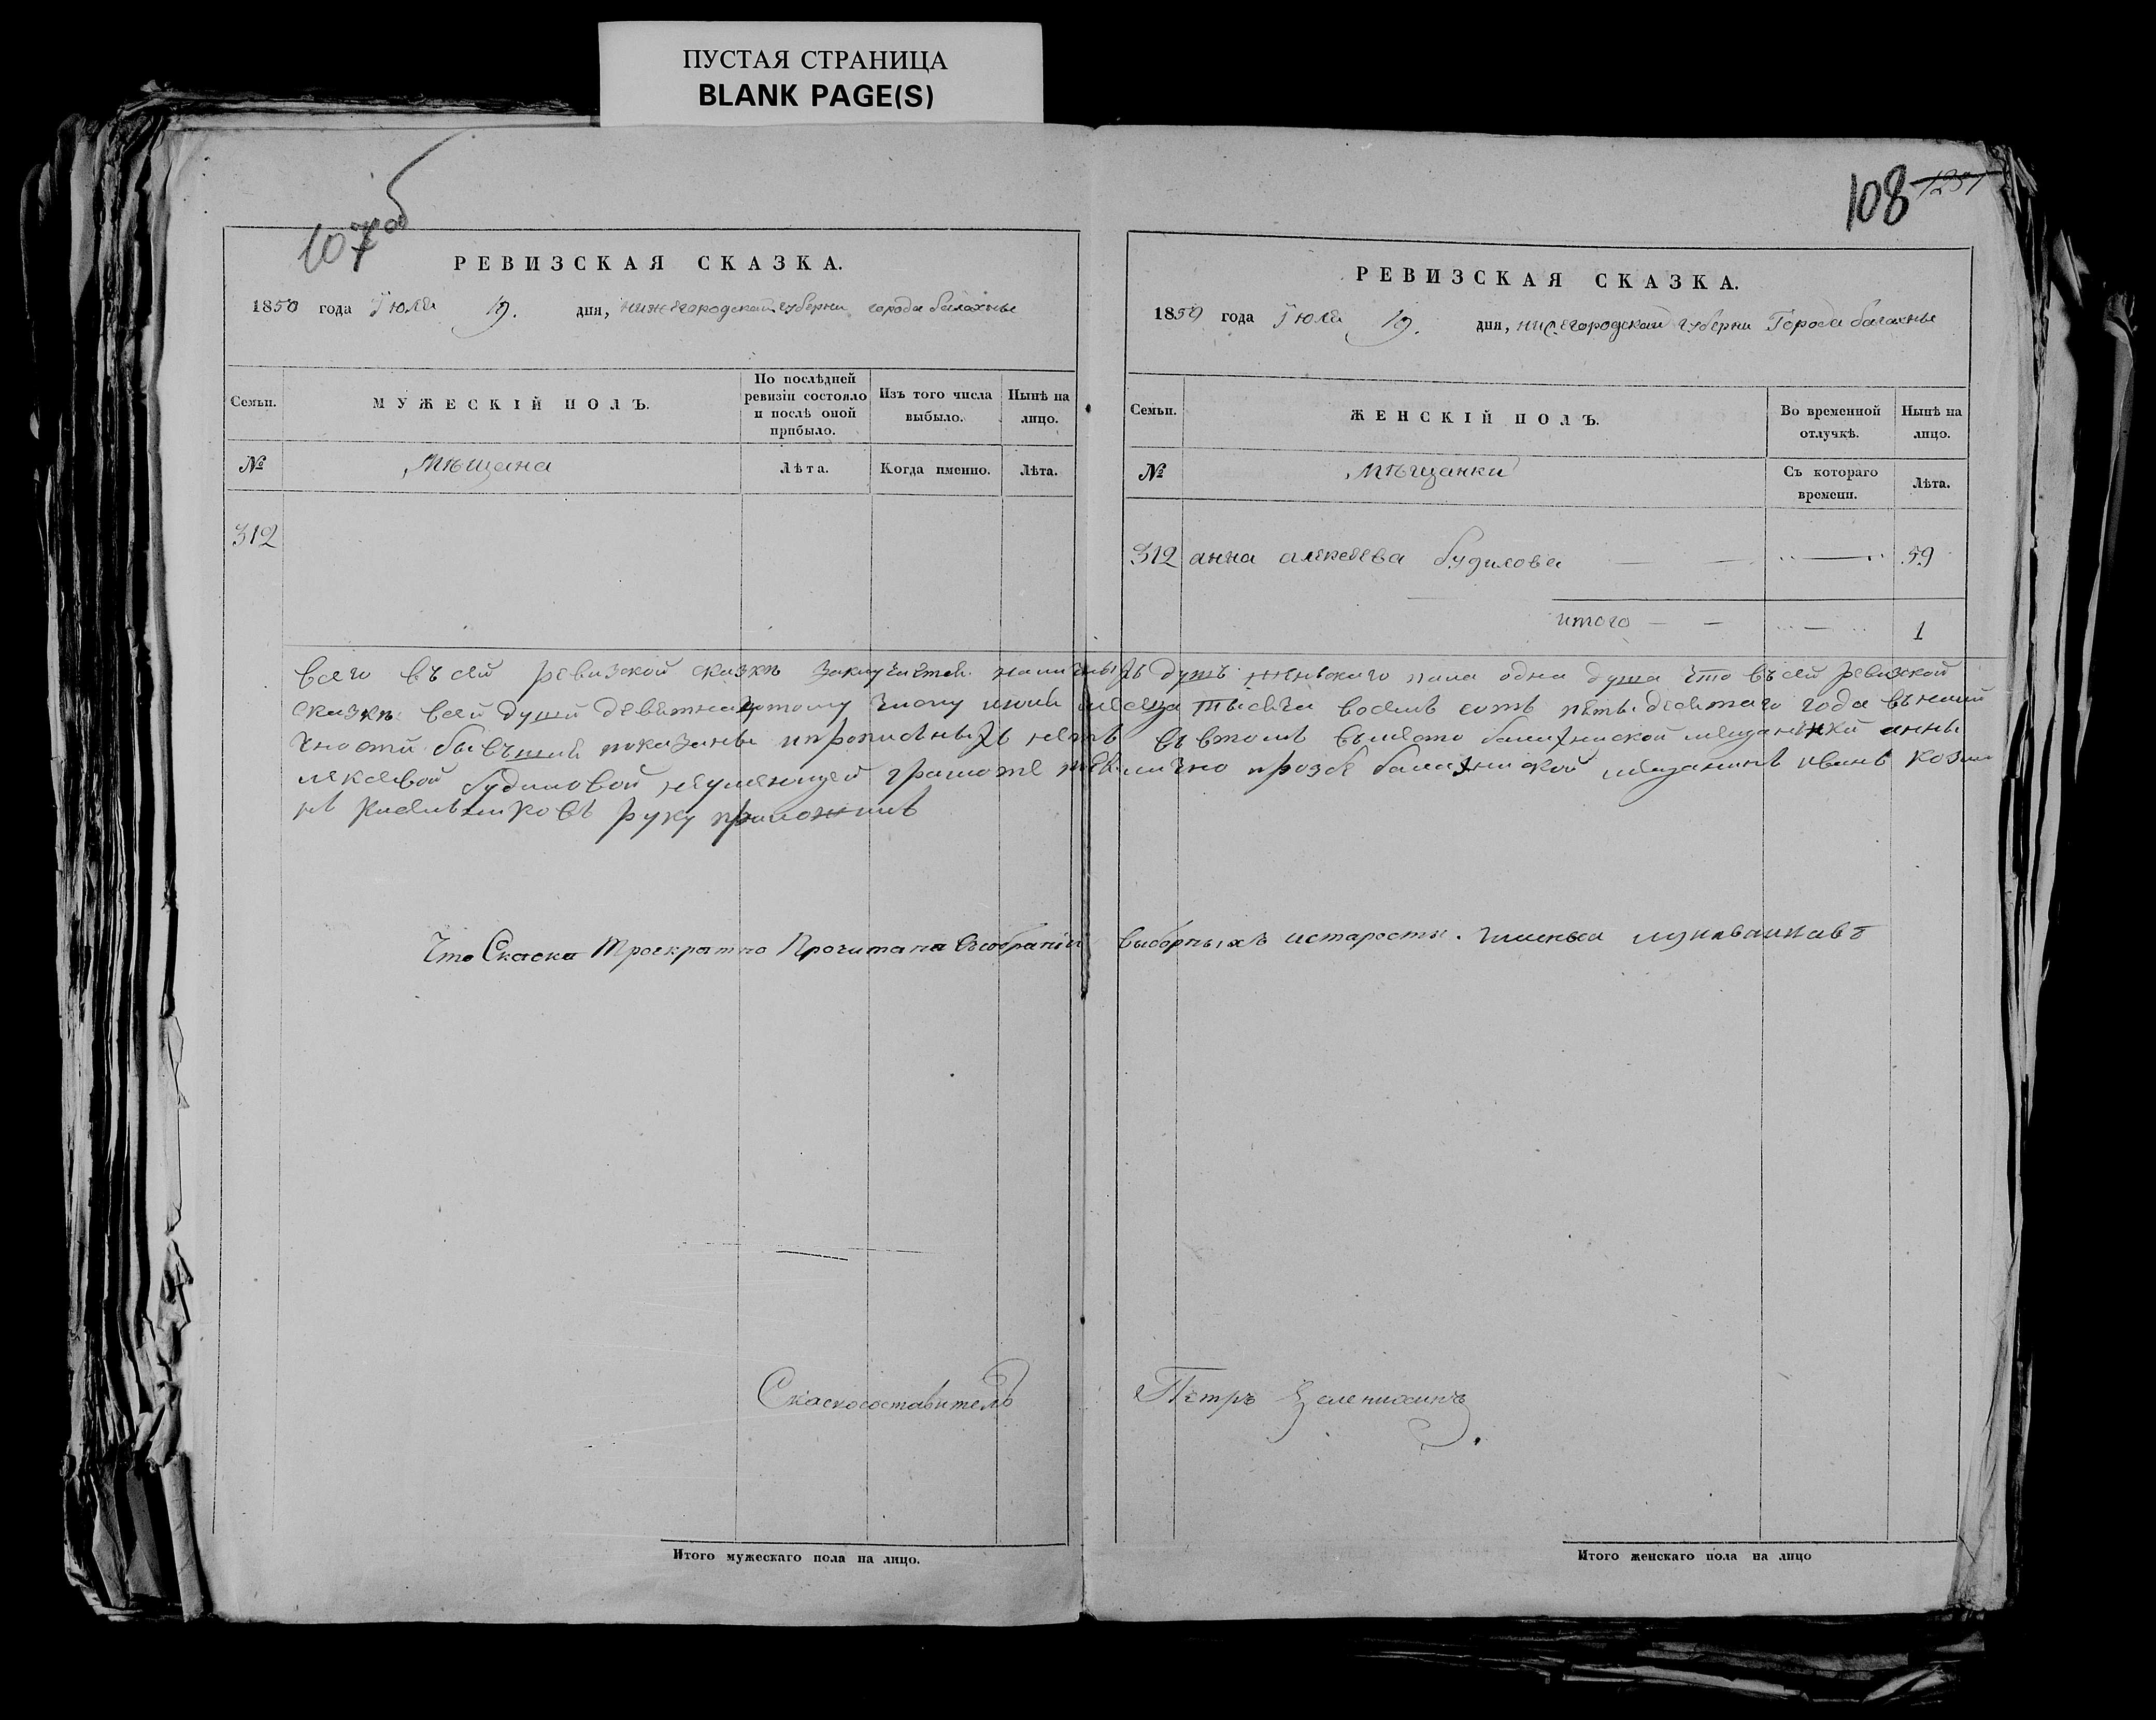 ПУСТАЯ СТРАНИЦА
BLANK PAGE(S)
107об
РЕВИЗСКАЯ СКАЗКА.
1850 года Июля 19. дня, нижегородской губерни города балахны
Семьи.
МУЖЕСКІЙ ПОЛЪ.
По послѣдней ревизіи состояло и послѣ оной прибыло.
Изъ того числа выбыло.
Нынѣ на лицо.
№
Мѣщана
Лѣта.
Когда именно.
Лѣта.
312
108 1251
РЕВИЗСКАЯ СКАЗКА.
1850 года Июля 19. дня, нижегородской губерни Города балахны
Семьи.
ЖЕНСКІЙ ПОЛЪ.
Во временной отлучкѣ.
Нынѣ на лицо.
№
мѣщанки
Съ котораго времени.
Лѣта.
312 анна алексеева будилова 59
итого 1
всего въ сей ревизской сказкѣ заключается наличныхъ душъ женскаго пола одна душа что въ сей ревизской
сказкѣ всей души девятнацотому числу июля месяца тысяча восемь сотъ пять десятаго года внали
чности бывшия показаны и прописныхъ нетъ въ томъ вместо балахниской мещанъкй анны
лексевой будиловой неумеющей грамоте лично прозбе балахниской мещанинъ иванъ козми
нъ руку приложилъ
Что Скаска троекратно Прочитана въ собраніи выборныхъ и старосты.
Скаскосоставитель Петръ
Итого мужескаго пола на лицо.
Итого женскаго пола на лицо